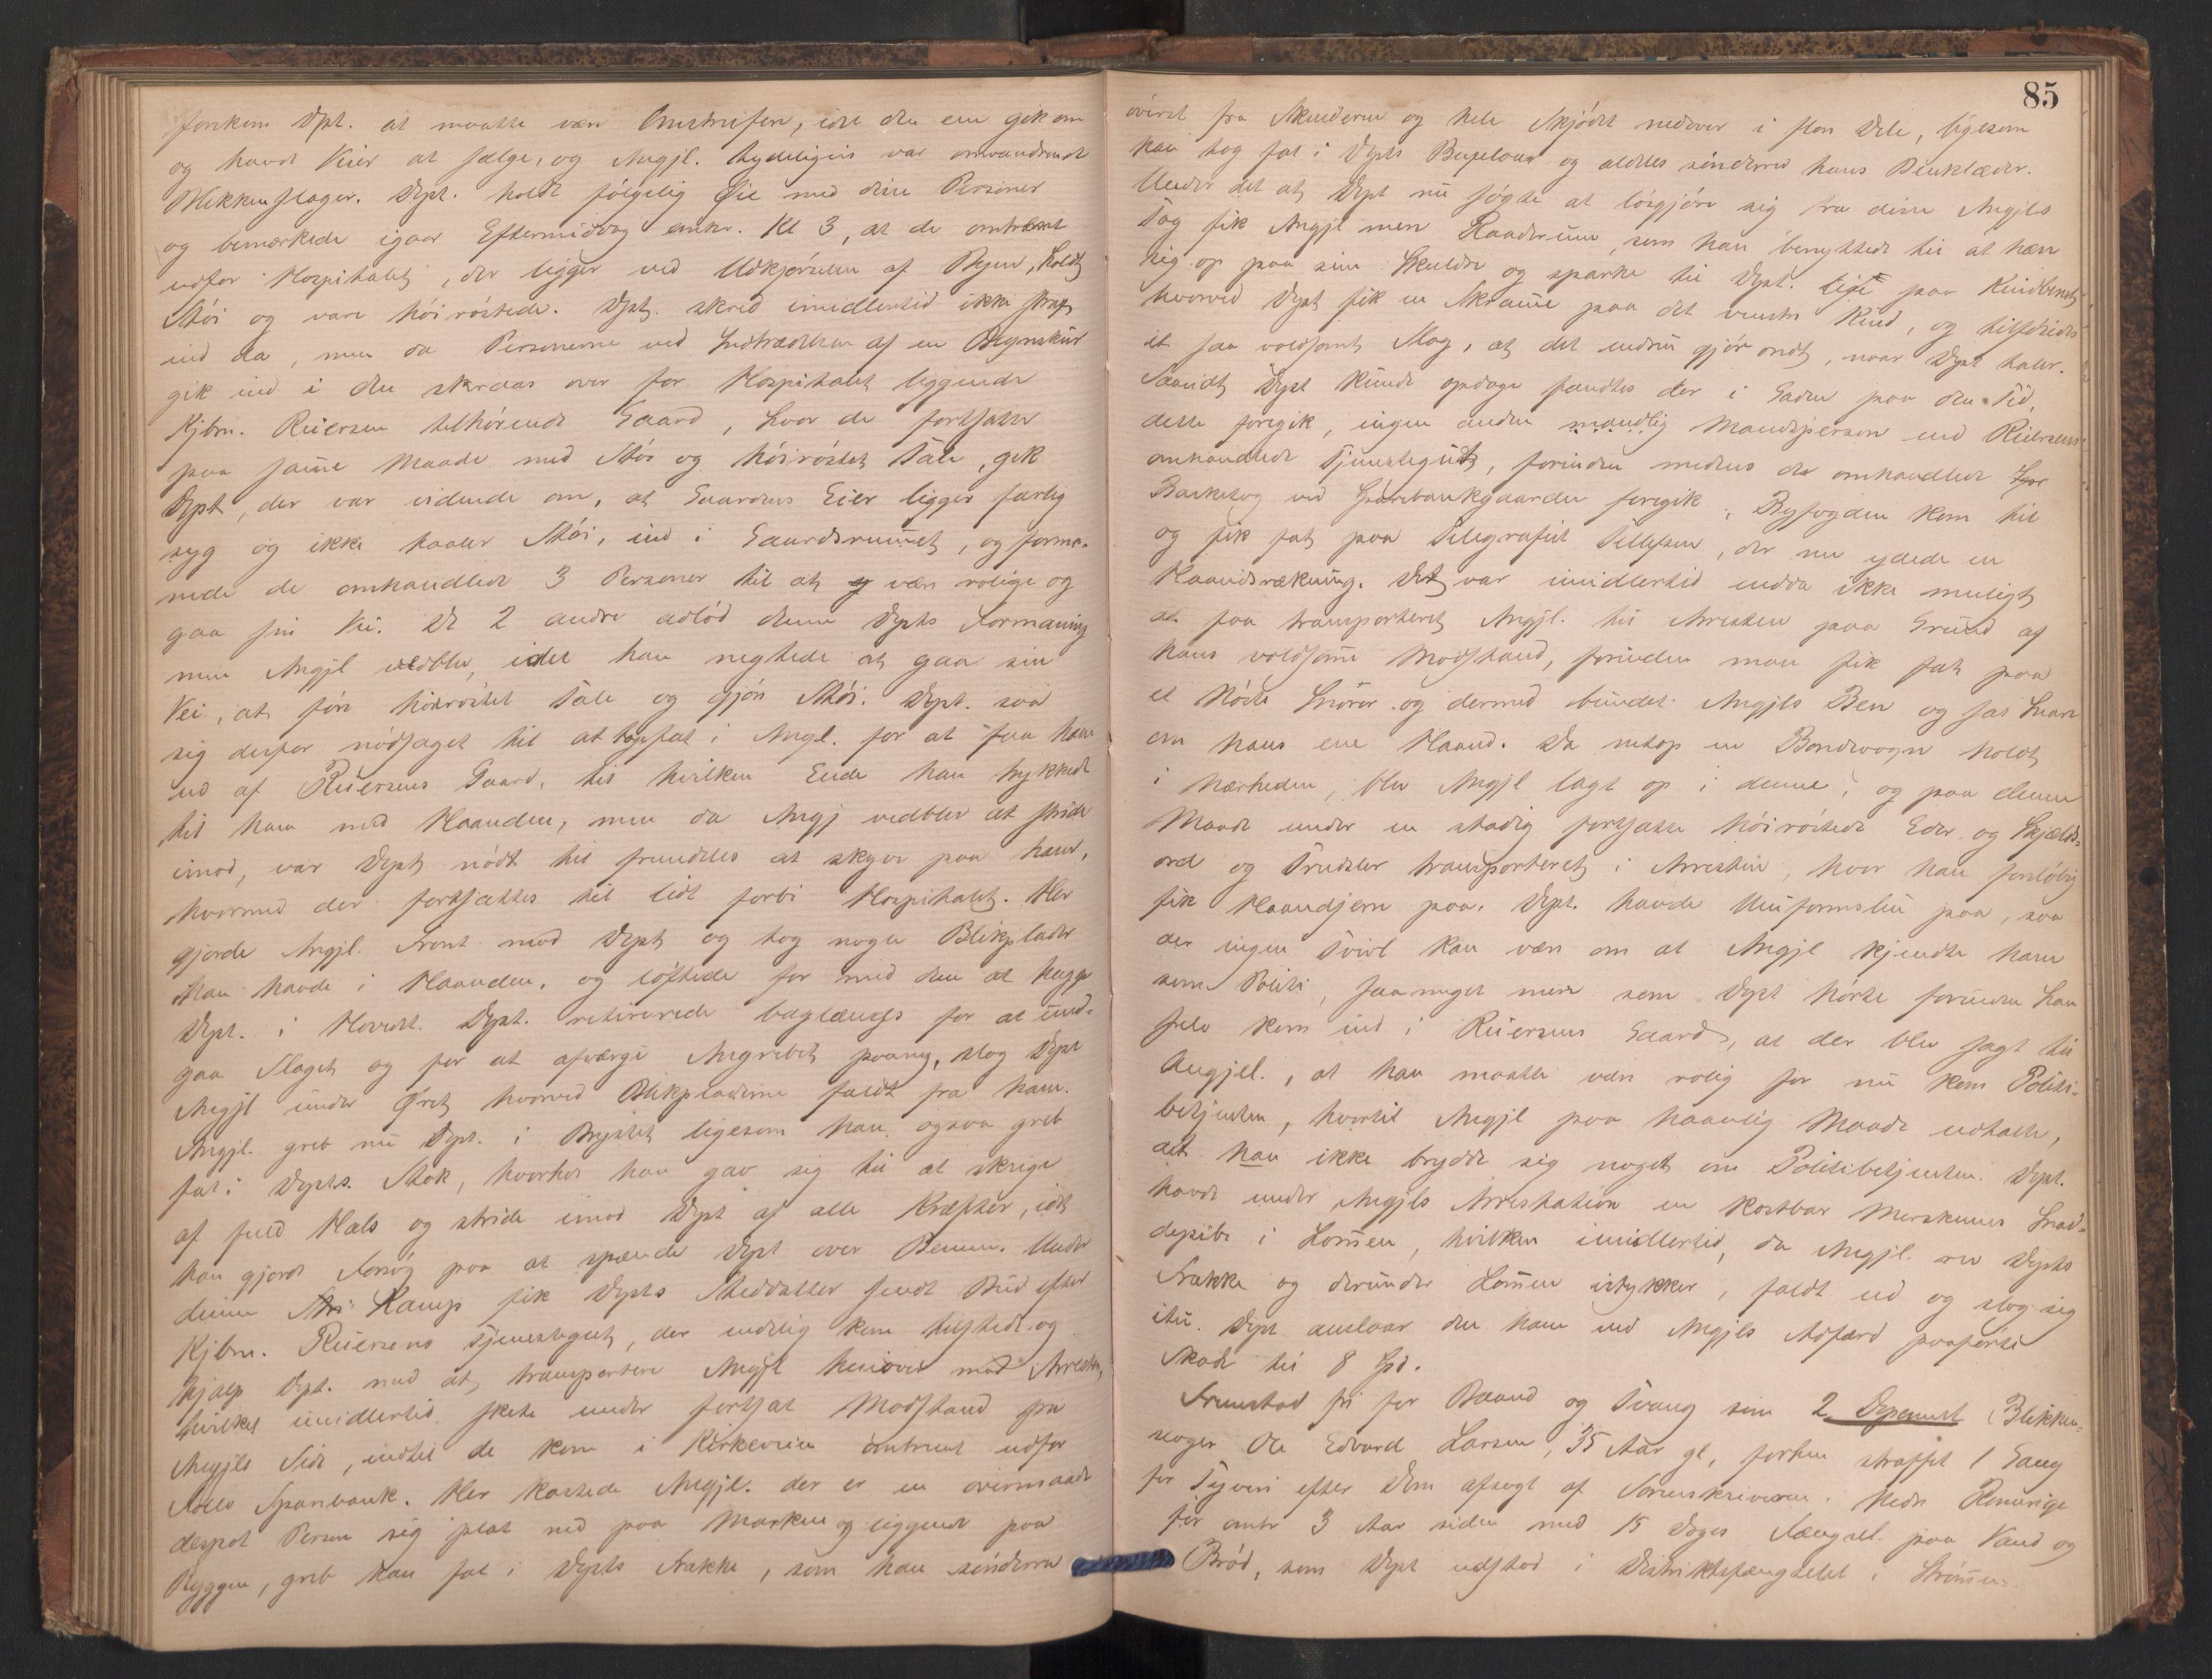 Dpt. at maatte være Omstreifere, idet den ene gik om
og havde Varer at sælge, og Angjl. tydeligvis var omvandrende
Blikkenslager. Dpt. holdt følgelig Øie med disse Personer
og bemærkede igaar Eftermiddag omkr. Kl 3, at de omtrent
udfor Hospitalet, der ligger ved Udkjørselen af Byen, holdt
Støi og vare høirøstede. Dpt. skred imidlertid ikke strax
ind da, men da Personerne ved Indtrædelsen af en Regnskur
gik ind i den skraas over for Hospitalet liggende
Kjbm. Riiersen tilhørende Gaard, hvor de fortsatte
paa samme Maade med Støi og høirøstet Tale, gik
Dpt, der var vidende om, at Gaardens Eier ligger farlig
syg og ikke taaler Støi, ind i Gaardsrummet, og forma-
nede de omhandlede 3 Personer til at være rolige og
gaa sin Vei. De 2 andre adlød denne Dpts Formaning
men Angjl vedblev, idet han negtede at gaa sin
Vei, at føre høirøstet Tale og gjøre Støi. Dpt. saa
sig derfor nødsaget til at tage fat i Angjl. for at faa ham
ud af Riiersens Gaard, til hvilken Ende han trykkede
til ham med Haanden, men da Angj vedblev at stride
imod, var Dpt nødt til fremdeles at skyve paa ham,
hvormed der fortsattes til lidt forbi Hospitalet. Her
gjorde Angjl. Front mod Dpt og tog nogle Blikplader
han havde i Haanden, og løftede for med dem at hugge
Dpt. i Hovedet. Dpt. retirerede baglænds for at und-
gaa Slaget og for at afværge Angrebet paany, slog Dpt
Angjl under Øret hvorved Blikpladerne faldt fra ham.
Angjl. greb nu Dpt. i Brystet ligesom han ogsaa greb
fat i Dpts. Stok, hvorhos han gav sig til at skrige
af fuld Hals og stride imod Dpt af alle Kræfter, idet
han gjorde Forsøg paa at spænde Dpt over Benene. Under
denne Kamp fik Dpts Steddatter sendt Bud efter
Kjbm. Riiersens Tjenestegut, der endelig kom tilstede og
hjalp Dpt. med at transportere Angjl henover mod Arresten,
hvilket imidlertid skete under fortsat Modstand fra
Angjls Side, indtil de kom i Kirkeveien omtrent udfor
Follo Sparebank. Her kastede Angjl. der er en overmaade
desperat Person sig plat ned paa Marken og liggende paa
Ryggen, greb han fat i Dpts Frakke, som han sønderrev
85
øverst fra Skulderen og hele Skjødet nedover i flere Dele, ligesom
han tog fat i Dpts Buxelomme og aldeles sønderrev hans Benklæder.
Under det at Dpt nu søgte at løsgjøre sig fra disse Angjls
Tag fik Angjl mere Raaderum, som han benyttede til at hæve
sig op paa sine Skuldre og sparke til Dpt. lige paa Kindbenet
hvorved Dpt fik en Skramme paa det venstre Kind, og tilføiedes
et saa voldsomt Slag, at det endnu gjør ondt, naar Dpt taler.
Saavidt Dpt kunde opdage fandtes der i Gaden paa den Tid,
dette foregik, ingen anden mandlig Mandsperson end Riiersens
omhandlede Tjenestegut, forinden medens det omhandlede
Basketag ved Sparebankgaarden foregik, Byfogden kom til
og fik fat paa Telegrafist Tellefsen, der nu ydede en
Haandsrækning. Det var imidlertid endda ikke muligt
at faa transporteret Angjl. til Arresten paa Grund af
hans voldsomme Modstand, forinden man fik fat paa
et Nøste Snører og dermed bundet Angjls Ben og sat Snare
om hans ene Haand. Da netop en Bondevogn holdt
i Nærheden, blev Angjl lagt op i denne, og paa denne
Maade under en stadig fortsatte høirøstede Eder og Skjælds-
ord og Trudsler transporteret i Arresten, hvor han foreløbig
fik Haandjern paa. Dpt. havde Uniformslue paa, saa
der ingen Tvivl kan være om at Angjl kjendte ham
som Politi, saameget mere som Dpt hørte forinden han
selv kom ind i Riiersens Gaard, at der blev sagt til
Angjel., at han maatte være rolig for nu kom Politi-
betjenten, hvortil Angjl paa haanlig Maade udtalte,
at han ikke brydde sig noget om Politibetjenten. Dpt.
havde under Angjls Arrestation en kostbar Merskums Snad-
depibe i Lommen, hvilken imidlertid, da Angjl. rev Dpts
Frakke og derunder Lommen istykker, faldt ud og slog sig
itu. Dpt anslaar den ham ved Angjls Adfærd paaførte
Skade til 8 Spd.
Fremstod fri for Baand og Tvang som 2 Deponent Blikken-
slager Ole Edvard Larsen, 35 Aar gl, forhen straffet 1 Gang
for Tyveri efter Dom afsagt af Sorenskriveren i Nedre Romerige
for omtr 3 Aar siden med 15 Dages Fængsel paa Vand og
Brød, som Dpt udstod i Distriktsfængselet i Strømmen.